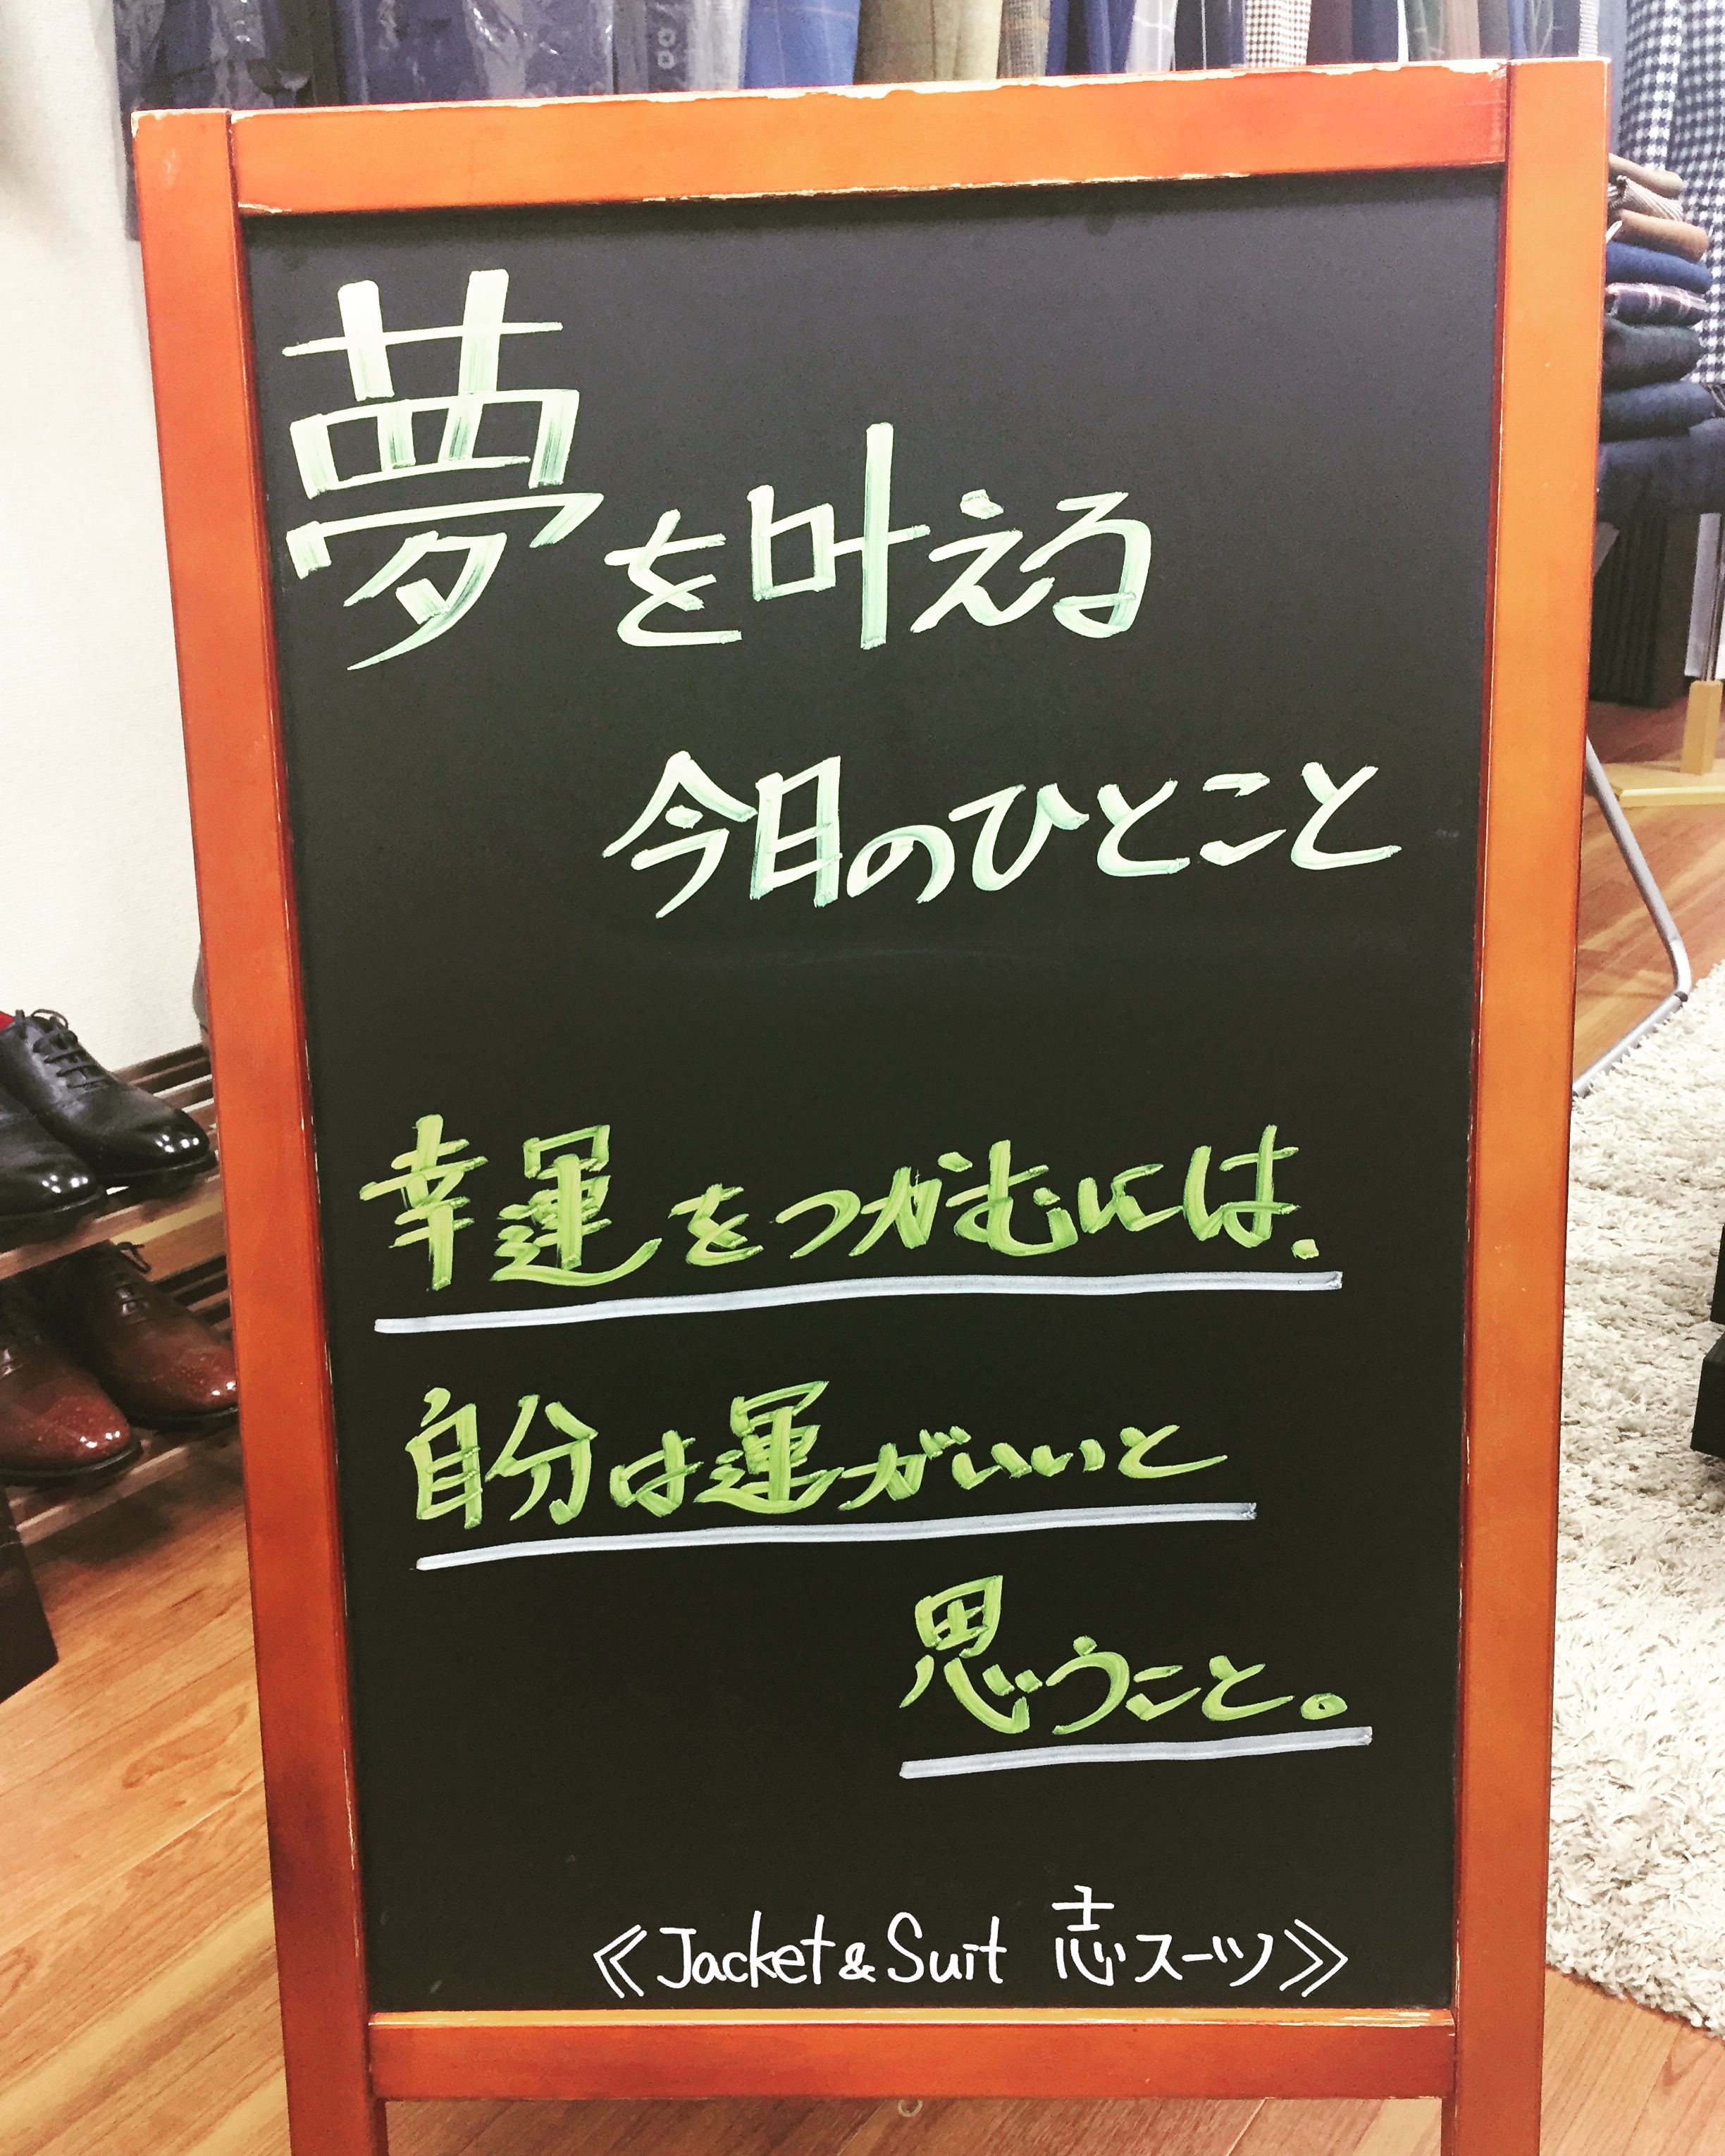 夢を叶える
今日のひとこと
幸運をつかむには、
自分は運がいいと
思うこと。
≪Jacket&Suit 志スーツ≫